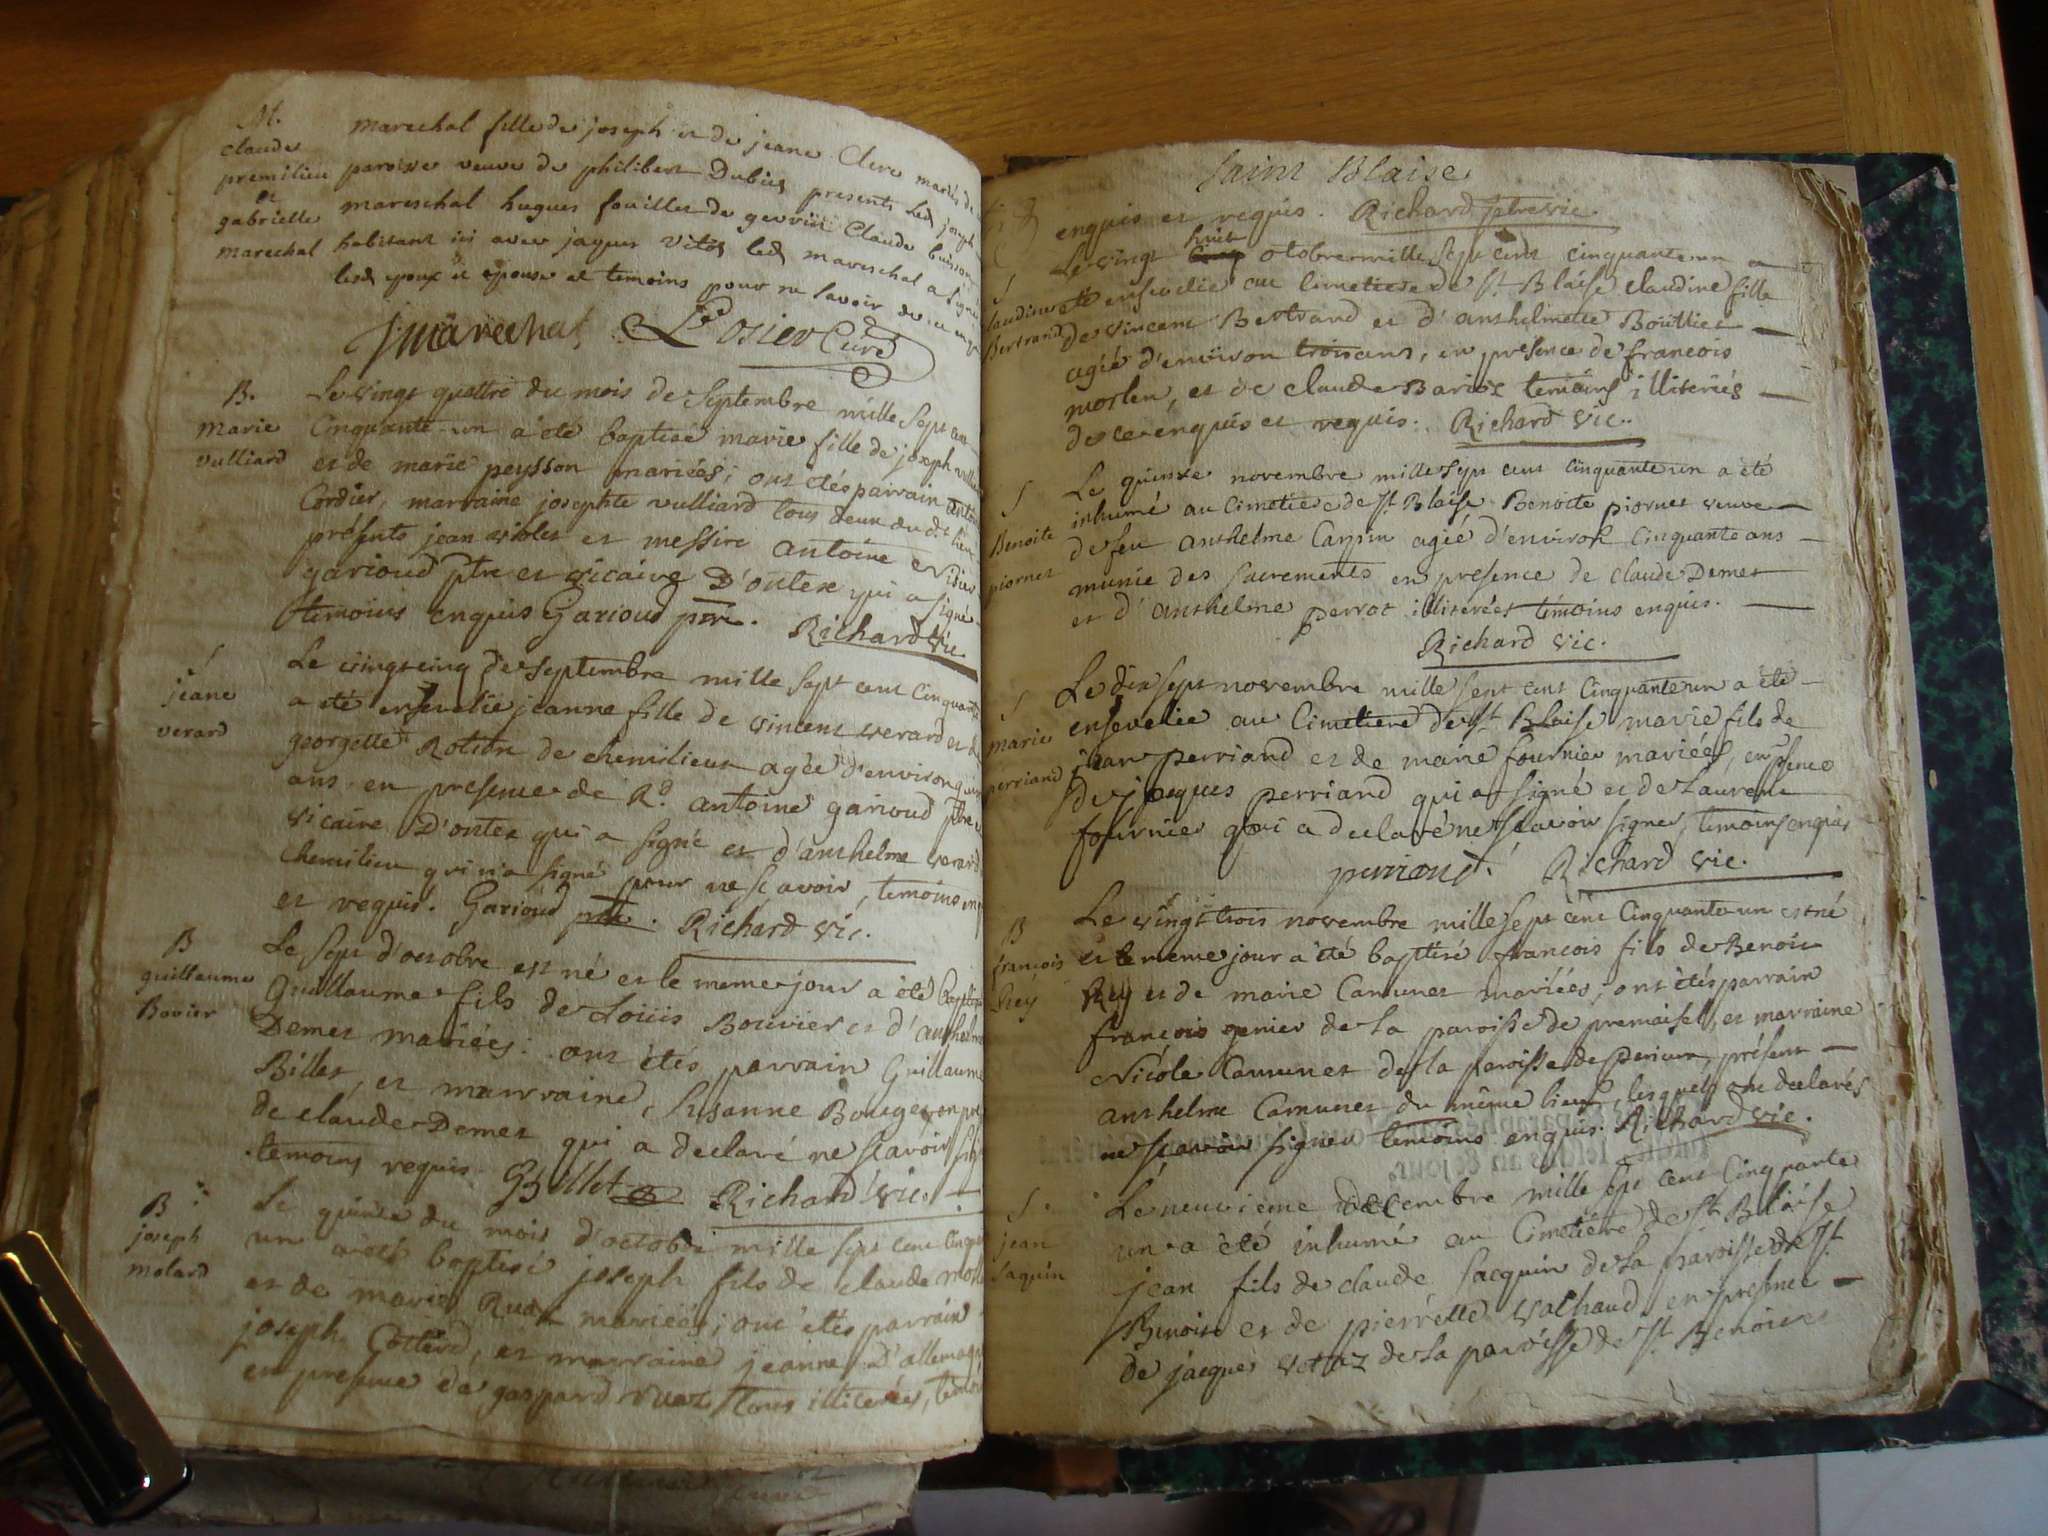 M.
claude
premilieu
et
gabrielle
marechal
marechal fille de joseph et de jeane Clerc mariés de
paroisse veuve de philibert Dubies presents led joseph
mareschal hugues fouillet de Claude buisson
habitant ici avec jaques vitoz led mareschal a signé
lesd epoux et epouse et temoins pour ne savoir de ce enq
J marechal Losier Curé
B.
Marie
vulliard
Le vingt quattre du mois de Septembre mille Sept cent
Cinquante-un a été baptisé marie fille de joseph vulliard
et de marie peysson mariées; ont étés parrain antoine
Cordier, marraine josephte vulliard tous deux du dt lieu
présents jean violet et messire antoine
garioud ptre et vicaire D'ontex qui a signé
temoins enquis Garioud ptre. Richard vic.
S
jeane
verard
Le vingt cinq de Septembre mille sept cent cinquante
a été ensevelie jeanne fille de vincent verard et de
georgette Rotion de chemilieu agée d'environ
ans en presence de Rd. antoine garioud ptre
vicaire D'ontex qui a signé et d'anthelme verard
chemilieu qui n'a signé pour ne scavoir, temoins enq
et requis. Garioud ptre. Richard vic.
B
guillaume
Bovier
Le sept d'octobre est né et le meme jour a été Baptisé
Guillaume fils de Loüis Bouvier et d'anthelme
Demet mariées: ont étés parrain Guillaume
Billet, et marraine Susanne Bougeron
de claude Demet qui a declaré ne scavoir sig
temoins requis. GBillet Richard vic.
B
joseph
molard
Le quinze du mois d'octobre mille sept cent cinqua
un a été baptisé joseph fils de claude mol
et de marie mariées; ont étés parrain
joseph Cottierd, et marraine jeanne D'allemagne
en presence de gaspard vuaz tous illiterées, temoi
Saint Blaise
enquis et requis. Richard ptre vic.
S
claudine
Bertrand
Le vingt huit octobre mille sept cent cinquante un a
été ensevelie au cimetiere de St. Blaise claudine fille
de vincent Bertrand et d'anthelmette Boüllier
agée d'environ trois ans, en presence de francois
morlen, et de claude Barioz temoins illiterés
de ce enquis et requis. Richard vic.
S
Benoite
piornet
Le quinze novembre mille sept cent cinquante un a été
inhumé au Cimetiere de St. Blaise Benoite piornet veuve
de feu anthelme Carrin agée d'environ cinquante ans
munie des sacrements en presence de claude Demet
et d'anthelme perrot illiterées témoins enquis.
Richard vic.
S
marie
perriand
Le dix sept novembre mille sept cent cinquante un a été
ensevelie au Cimetiere de St. Blaise marie fils de
jean perriand et de marie fournier mariées, en psence
de jacques perriand qui a signé et de Laurent
fournier qui a declaré ne scavoir signer, temoins enquis
perriand. Richard vic.
B
françois
Rey
Le vingt trois novembre mille sept cent cinquante un est né
et le meme jour a été baptisé francois fils de Benoit
Rey et de marie Camunet mariées; ont étés parrain
françois genier de la paroisse de premaisel, et marraine
Nicole Camunet de la paroisse de perieux, présent
anthelme Camunet du même lieux, lesquels ont declarés
ne scavoir signer temoins enquis. Richard vic.
S.
jean
Saquin
Le neuvieme decembre mille sept cent cinquante
un a été inhumé au Cimetiére de St. Blaise
jean fils de claude Sacquin de la paroisse de St.
Benoit et de pierrette valhaud en presence
de jacques vetaz de la paroisse de St. Benoit et